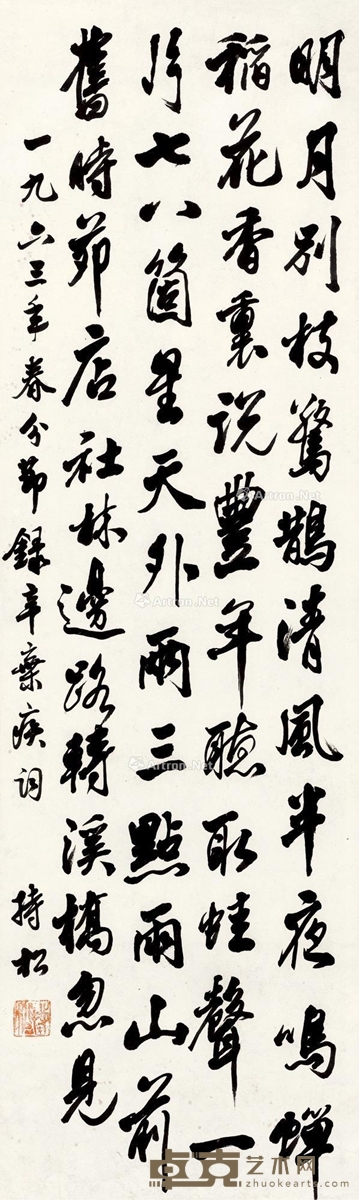 明月別枝驚鵲清風半夜鳴蟬
稻花香裏說豐年聽取蛙聲一
片七八箇星天外兩三點雨山前
舊時茆店社林邊路轉溪橋忽見
一九六三年春分節錄辛棄疾詞
持松
Artron.Net
Artron.Net
Artron.Net
卓克艺术网
zhuokearts.com